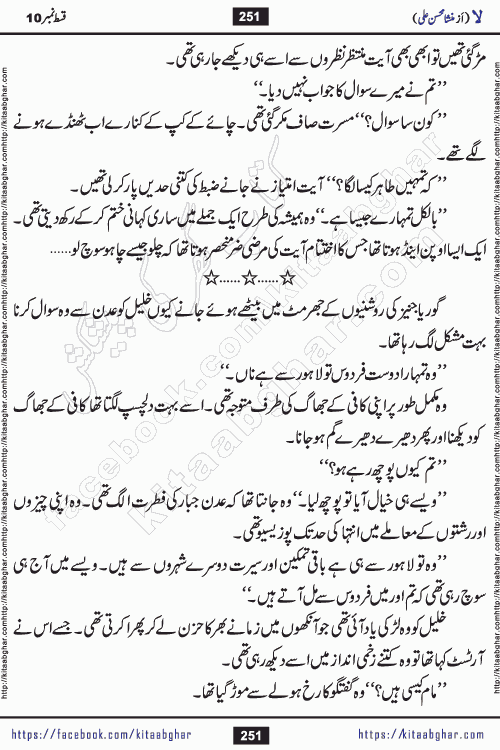 لا (از منشا محسن علی) 251 قسط نمبر 10
مڑ گئی تھیں تو ابھی بھی آیت منتظر نظروں سے اسے ہی دیکھے جا رہی تھی۔
’’تم نے میرے سوال کا جواب نہیں دیا۔‘‘
’’کون سا سوال؟‘‘ مسرت صاف مکر گئی تھی۔ چائے کے کپ کے کنارے اب ٹھنڈے ہونے
لگے تھے۔
’’کہ تمہیں طاہر کیسا لگا؟‘‘ آیت امتیاز نے جانے ضبط کی کتنی حدیں پار کر لی تھیں۔
’’بالکل تمہارے جیسا ہے۔‘‘ وہ ہمیشہ کی طرح ایک جملے میں ساری کہانی ختم کر کے رکھ دیتی تھی۔
ایک ایسا اوپن اینڈ ہوتا تھا جس کا اختتام آیت کی مرضی ضر منحصر ہوتا تھا کہ چلو جیسے چاہو سوچ لو......
☆......☆......☆
گوریا جنیز کی روشنیوں کے جھرمٹ میں بیٹھے ہوئے جانے کیوں خلیل کو عدن سے وہ سوال کرنا
بہت مشکل لگ رہا تھا۔
’’وہ تمہارا دوست فردوس تو لاہور سے ہے ناں۔‘‘
وہ مکمل طور پر اپنی کافی کے جھاگ کی طرف متوجہ تھی۔ اسے بہت دلچسپ لگتا تھا کافی کے جھاگ
کو دیکھنا اور پھر دھیرے دھیرے گم ہو جانا۔
’’تم کیوں پوچھ رہے ہو؟‘‘
’’ویسے ہی خیال آیا تو پوچھ لیا۔‘‘ وہ جانتا تھا کہ عدن جبار کی فطرت الگ تھی۔ وہ اپنی چیزوں
اور رشتوں کے معاملے میں انتہا کی حد تک پوزیسیو تھی۔
’’وہ تو لاہور سے ہی ہے باقی تمکین اور سیرت دوسرے شہروں سے ہیں۔ ویسے میں آج ہی
سوچ رہی تھی کہ تم اور میں فردوس سے مل آتے ہیں۔‘‘
خلیل کو وہ لڑکی یاد آئی تھی جو آنکھوں میں زمانے بھر کا حزن لے کر پھرا کرتی تھی۔ جسے اس نے
آرٹسٹ کہا تھا تو وہ کتنے زخمی انداز میں اسے دیکھ رہی تھی۔
’’مام کیسی ہیں؟‘‘ وہ گفتگو کا رخ ہولے سے موڑ گیا تھا۔
https://facebook.com/kitaabghar 251 https://kitaabghar.com